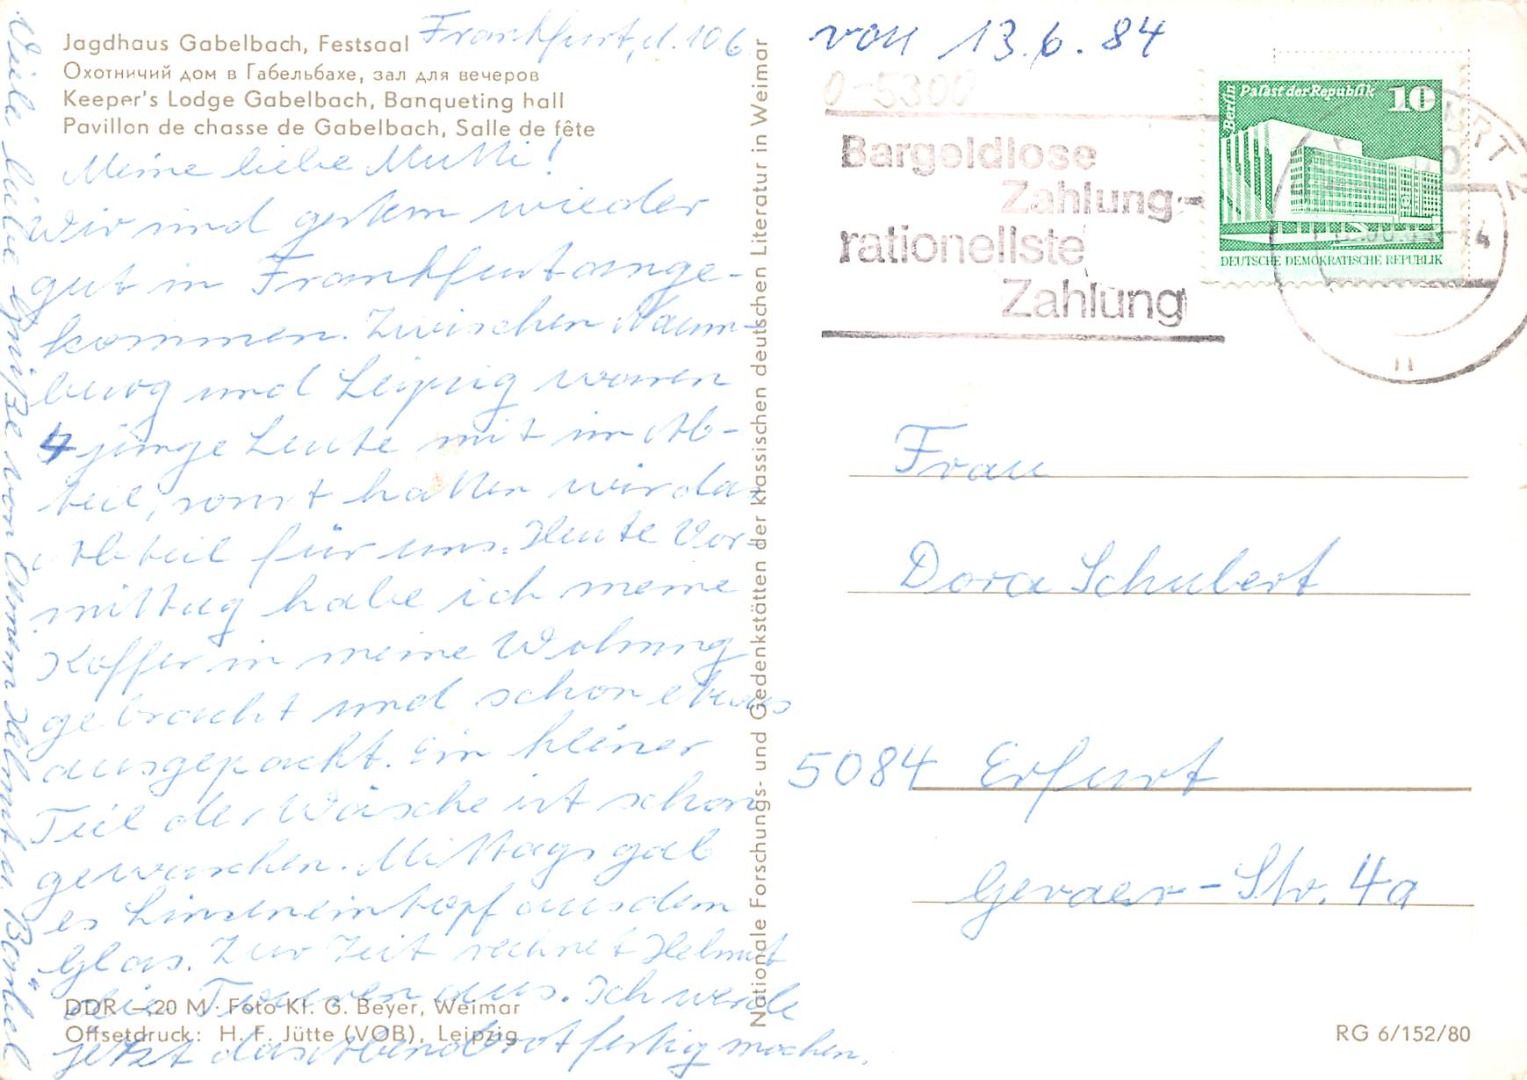 Jagdhaus Gabelbach, Festsaal
Охотничий дом в Габельбахе, зал для вечеров
Keeper's Lodge Gabelbach, Banqueting hall
Pavillon de chasse de Gabelbach, Salle de fête
Frankfurt, d. 10.6
Meine liebe Mutti!
Wir sind gestern wieder
gut in Frankfurt ange-
kommen. Zwischen Naum-
burg und Leipzig waren
4 junge Leute mit im Ab-
teil, sonst hatten wir das
Abteil für uns. Heute Vor-
mittag habe ich meine
Koffer in meine Wohnung
gebracht und schon etwas
ausgepackt. Ein kleiner
Teil der Wäsche ist schon
gewaschen. Mittags gab
es Linseneintopf aus dem
Glas. Zur Zeit rechnet Helmut
die Touren aus. Ich werde
jetzt das Abendbrot fertig machen.
Viele liebe Grüße von Helmut u. Bärbel
DDR –20 M · Foto Kl. G. Beyer, Weimar
Offsetdruck: H. F. Jütte (VOB), Leipzig
Nationale Forschungs- und Gedenkstätten der klassischen deutschen Literatur in Weimar
von 13.6.84
0-5300
Bargeldlose
Zahlung-
rationellste
Zahlung
Berlin
Palast der Republik
10
DEUTSCHE DEMOKRATISCHE REPUBLIK
Frau
Dora Schubert
5084 Erfurt
Geraer-Str. 4a
RG 6/152/80